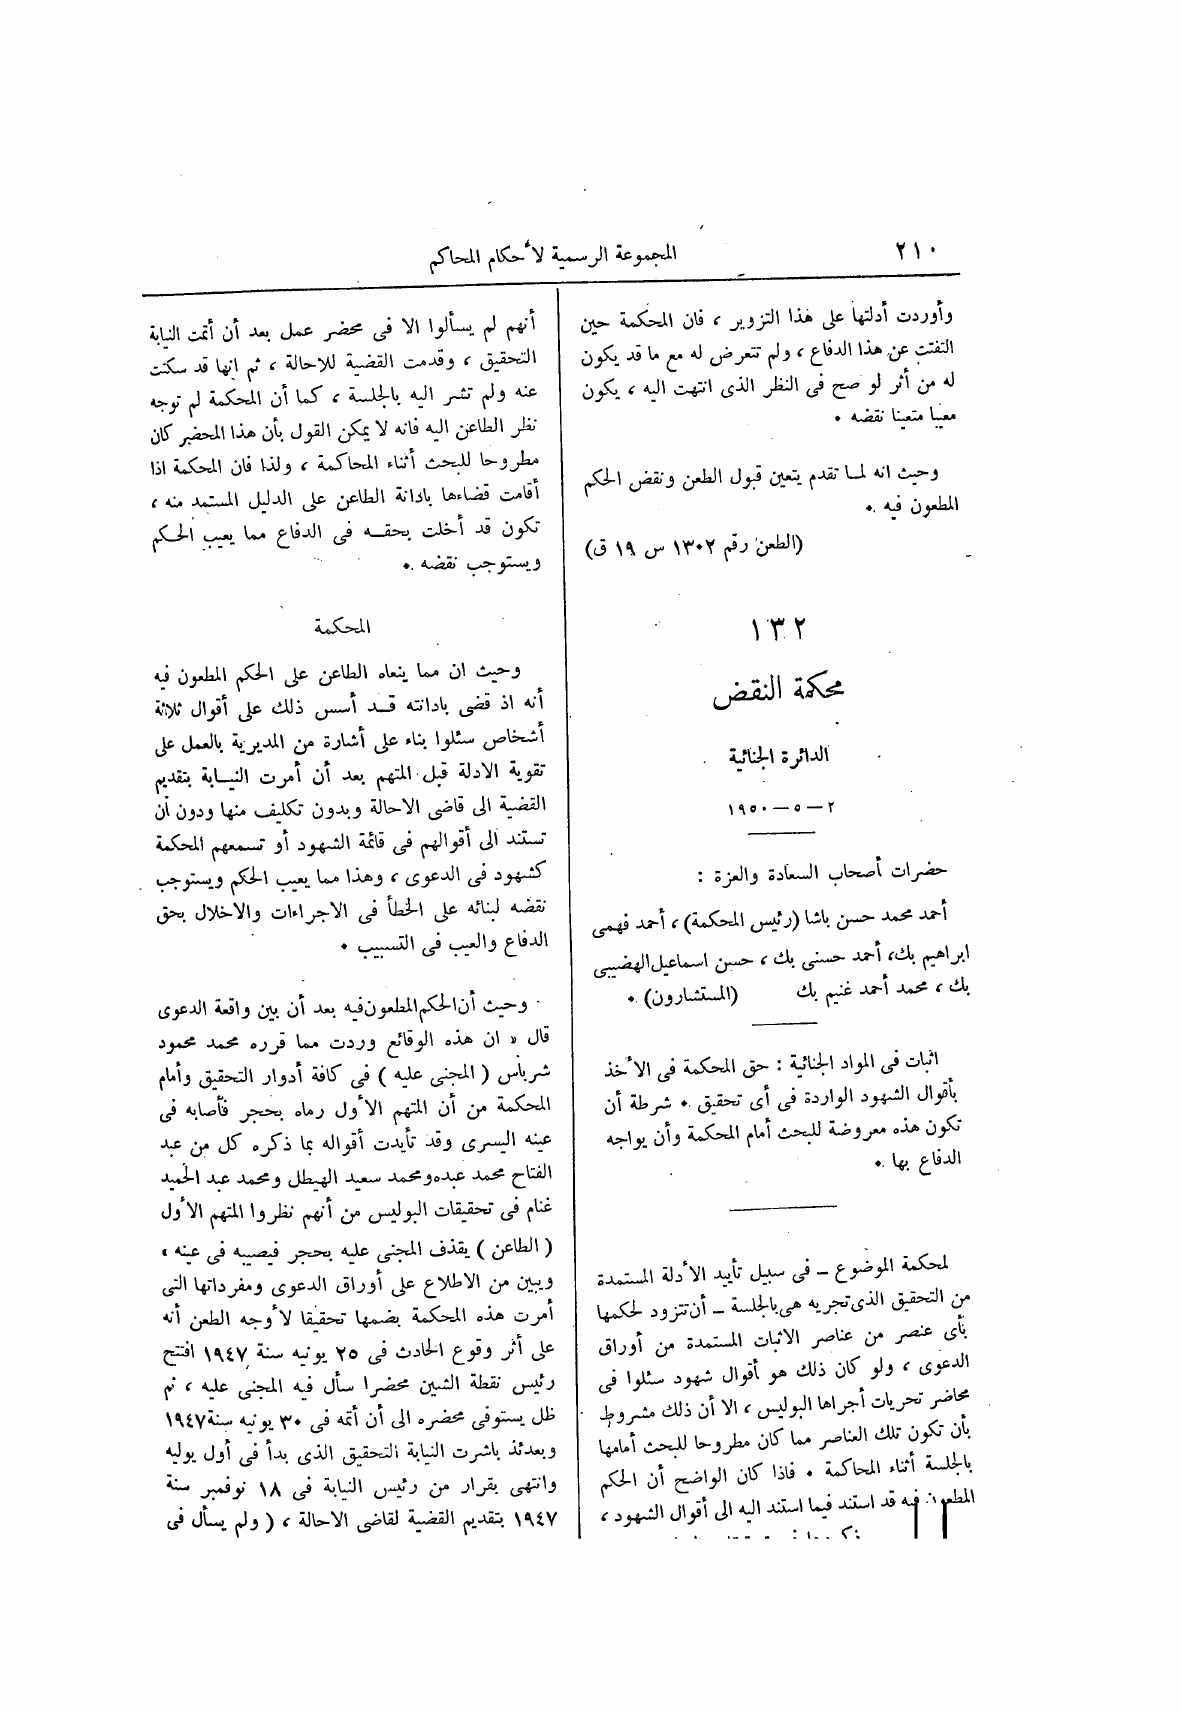 ٢١٠
المجموعة الرسمية لأحكام المحاكم
وأوردت أدلتها على هذا التزوير ، فان المحكمة حين
التفتت عن هذا الدفاع ، ولم تتعرض له مع ما قد يكون
له من أثر لو صح فى النظر الذى انتهت اليه ، يكون
معيبا متعينا نقضه .
وحيث انه لما تقدم يتعين قبول الطعن ونقض الحكم
المطعون فيه .
(الطعن رقم ١٣٠٢ س ١٩ ق)
١٣٢
محكمة النقض
الدائرة الجنائية
٢ – ٥ – ١٩٥٠
حضرات أصحاب السعادة والعزة :
أحمد محمد حسن باشا (رئيس المحكمة) ، أحمد فهمى
ابراهيم بك، أحمد حسنى بك ، حسن اسماعيل الهضيبى
بك ، محمد أحمد غنيم بك (المستشارون) .
اثبات فى المواد الجنائية : حق المحكمة فى الأخذ
بأقوال الشهود الواردة فى أى تحقيق . شرطة أن
تكون هذه معروضة للبحث أمام المحكمة وأن يواجه
الدفاع بها .
لمحكمة الموضوع – فى سبيل تأييد الأدلة المستمدة
من التحقيق الذى تجريه هى بالجلسة – أن تتزود لحكمها
بأى عنصر من عناصر الاثبات المستمدة من أوراق
الدعوى ، ولو كان ذلك هو أقوال شهود سئلوا فى
محاضر تحريات أجراها البوليس ، الا أن ذلك مشروط
بأن تكون تلك العناصر مما كان مطروحا للبحث أمامها
بالجلسة أثناء المحاكمة . فاذا كان الواضح أن الحكم
المطعون فيه قد استند فيما استند اليه الى أقوال الشهود ،
أنهم لم يسألوا الا فى محضر عمل بعد أن أتمت النيابة
التحقيق ، وقدمت القضية للاحالة ، ثم انها قد سكتت
عنه ولم تشر اليه بالجلسة ، كما أن المحكمة لم توجه
نظر الطاعن اليه فانه لا يمكن القول بأن هذا المحضر كان
مطروحا للبحث أثناء المحاكمة ، ولذا فان المحكمة اذا
أقامت قضاءها بادانة الطاعن على الدليل المستمد منه ،
تكون قد أخلت بحقه فى الدفاع مما يعيب الحكم
ويستوجب نقضه .
المحكمة
وحيث ان مما ينعاه الطاعن على الحكم المطعون فيه
أنه اذ قضى بادانته قد أسس ذلك على أقوال ثلاثة
أشخاص سئلوا بناء على أشارة من المديرية بالعمل على
تقوية الادلة قبل المتهم بعد أن أمرت النيابة بتقديم
القضية الى قاضى الاحالة وبدون تكليف منها ودون أن
تستند الى أقوالهم فى قائمة الشهود أو تسمعهم المحكمة
كشهود فى الدعوى ، وهذا مما يعيب الحكم ويستوجب
نقضه لبنائه على الخطأ فى الاجراءات والاخلال بحق
الدفاع والعيب فى التسبيب .
وحيث أن الحكم المطعون فيه بعد أن بين واقعة الدعوى
قال « ان هذه الوقائع وردت مما قرره محمد محمود
شرباس ( المجنى عليه ) فى كافة أدوار التحقيق وأمام
المحكمة من أن المتهم الأول رماه بحجر فأصابه فى
عينه اليسرى وقد تأيدت أقواله بما ذكره كل من عبد
الفتاح محمد عبده ومحمد سعيد الهيطل ومحمد عبد الحميد
غنام فى تحقيقات البوليس من أنهم نظروا المتهم الأول
( الطاعن ) يقذف المجنى عليه بحجر فيصيبه فى عينه »
ويبين من الاطلاع على أوراق الدعوى ومفرداتها التى
أمرت هذه المحكمة بضمها تحقيقا لأوجه الطعن أنه
على أثر وقوع الحادث فى ٢٥ يونيه سنة ١٩٤٧ افتتح
رئيس نقطة الشين محضرا سأل فيه المجنى عليه ، ثم
ظل يستوفى محضره الى أن أتمه فى ٣٠ يونيه سنة ١٩٤٧
وبعدئذ باشرت النيابة التحقيق الذى بدأ فى أول يوليه
وانتهى بقرار من رئيس النيابة فى ١٨ نوفمبر سنة
١٩٤٧ بتقديم القضية لقاضى الاحالة ، ( ولم يسأل فى